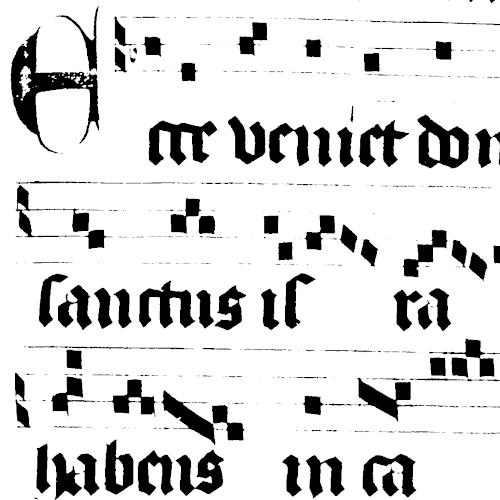 Ecce veniet don
sanctus is ra
habens in ca